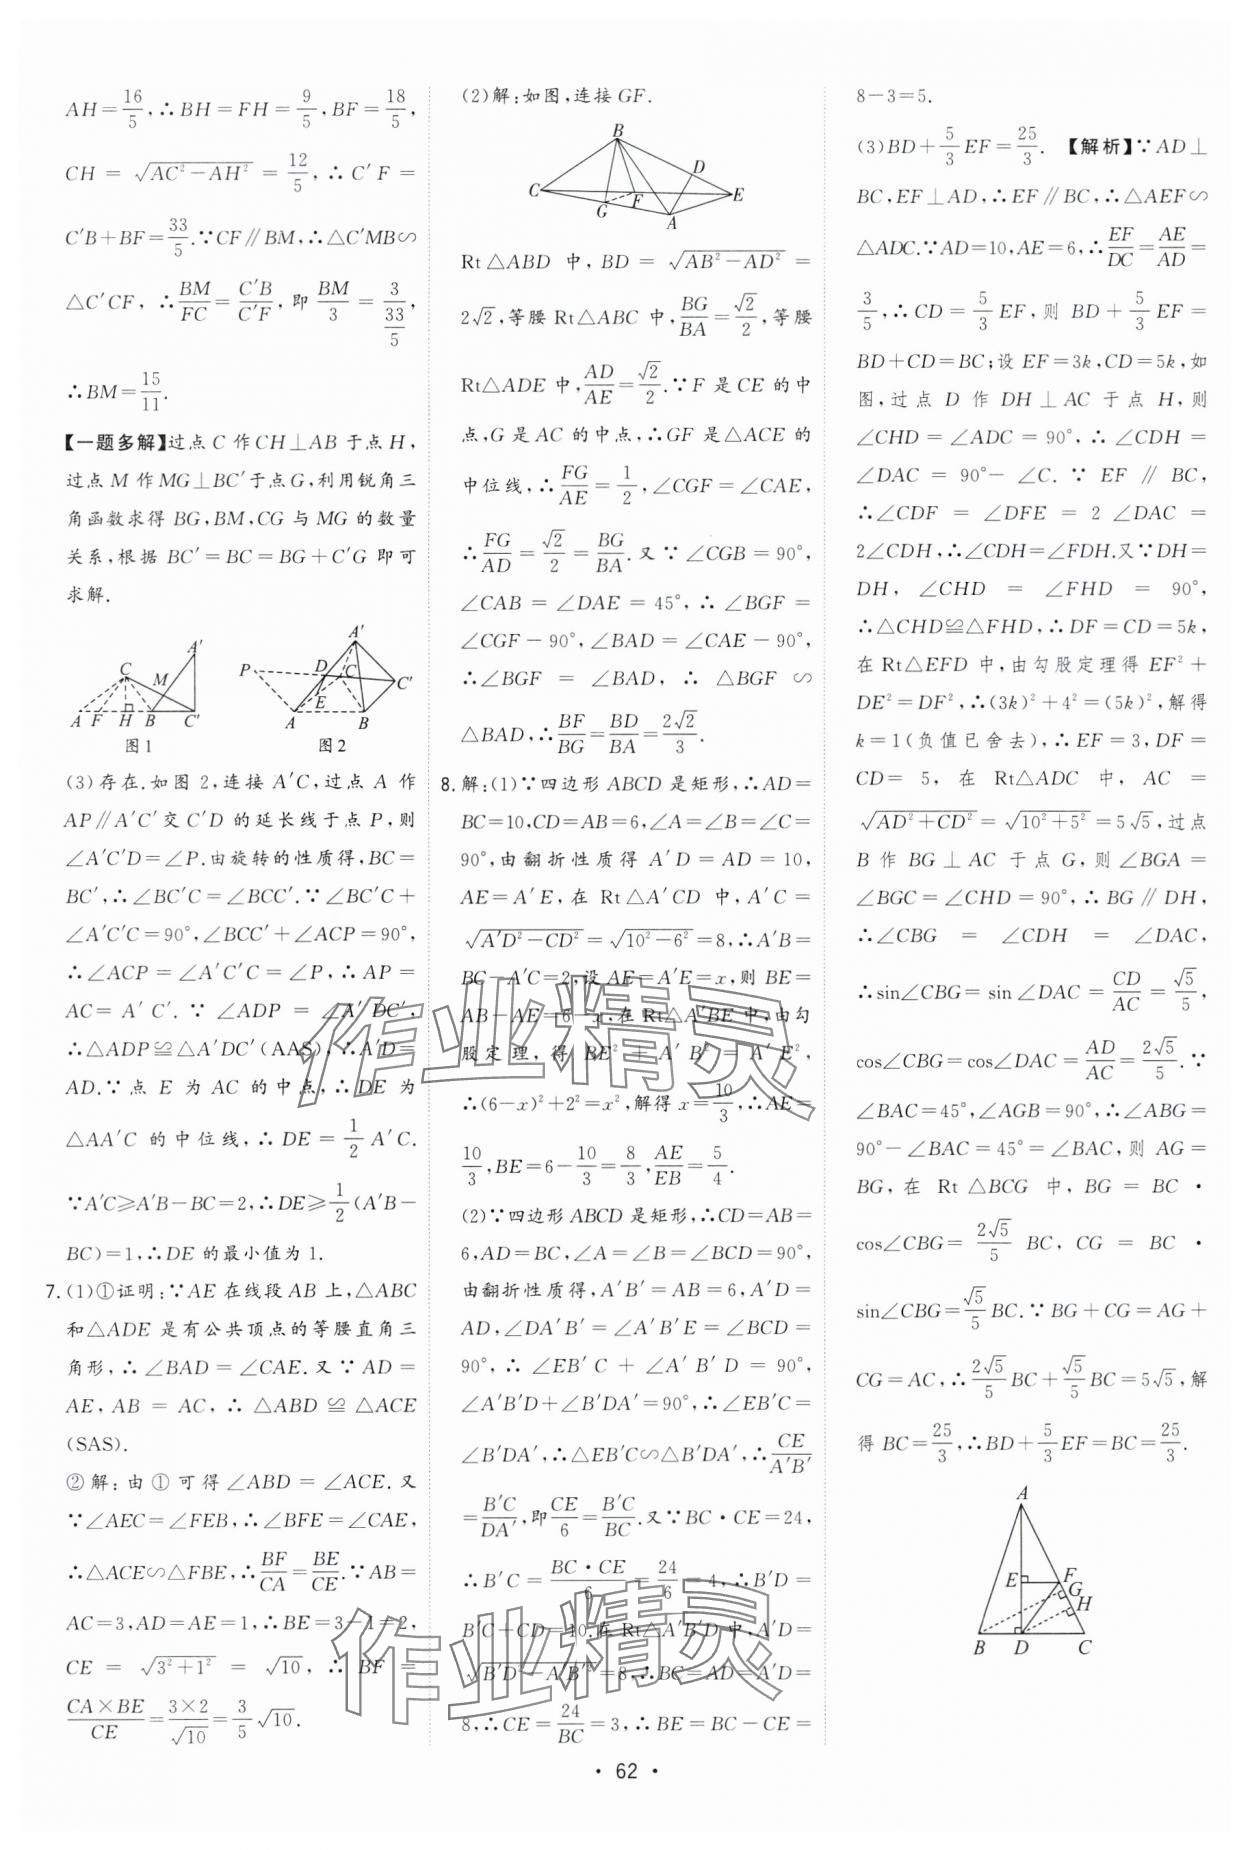 AH=16/5,∴BH=FH=9/5,BF=18/5,
CH=√(AC²-AH²)=12/5,∴C′F=
C′B+BF=33/5.∵CF∥BM,∴△C′MB∽
△C′CF,∴BM/FC=C′B/C′F,即BM/3=3/(33/5)
∴BM=15/11.
【一题多解】过点C作CH⊥AB于点H,
过点M作MG⊥BC′于点G,利用锐角三
角函数求得BG,BM,CG与MG的数量
关系,根据BC′=BC=BG+C′G即可
求解.
A F H B C′ C M A′
图1
P D C C′ A′ E A B
图2
(3)存在.如图2,连接A′C,过点A作
AP∥A′C′交C′D的延长线于点P,则
∠A′C′D=∠P.由旋转的性质得,BC=
BC′,∴∠BC′C=∠BCC′.∵∠BC′C+
∠A′C′C=90°,∠BCC′+∠ACP=90°,
∴∠ACP=∠A′C′C=∠P,∴AP=
AC=A′C′.∵∠ADP=∠A′DC′,
∴△ADP≌△A′DC′(AAS),∴A′D=
AD.∵点E为AC的中点,∴DE为
△AA′C的中位线,∴DE=1/2A′C.
∵A′C≥A′B-BC=2,∴DE≥1/2(A′B-
BC)=1,∴DE的最小值为1.
7.(1)①证明:∵AE在线段AB上,△ABC
和△ADE是有公共顶点的等腰直角三
角形,∴∠BAD=∠CAE.又∵AD=
AE,AB=AC,∴△ABD≌△ACE
(SAS).
②解:由①可得∠ABD=∠ACE.又
∵∠AEC=∠FEB,∴∠BFE=∠CAE,
∴△ACE∽△FBE,∴BF/CA=BE/CE.∵AB=
AC=3,AD=AE=1,∴BE=3-1=2,
CE=√(3²+1²)=√10,∴BF=
(CA×BE)/CE=(3×2)/√10=3/5√10.
(2)解:如图,连接GF.
B D C F E G A
Rt△ABD中,BD=√(AB²-AD²)=
2√2,等腰Rt△ABC中,BG/BA=√2/2,等腰
Rt△ADE中,AD/AE=√2/2.∵F是CE的中
点,G是AC的中点,∴GF是△ACE的
中位线,∴FG/AE=1/2,∠CGF=∠CAE,
∴FG/AD=√2/2=BG/BA.又∵∠CGB=90°,
∠CAB=∠DAE=45°,∴∠BGF=
∠CGF-90°,∠BAD=∠CAE-90°,
∴∠BGF=∠BAD,∴△BGF∽
△BAD,∴BF/BG=BD/BA=2√2/3.
8.解:(1)∵四边形ABCD是矩形,∴AD=
BC=10,CD=AB=6,∠A=∠B=∠C=
90°,由翻折性质得A′D=AD=10,
AE=A′E,在Rt△A′CD中,A′C=
√(A′D²-CD²)=√(10²-6²)=8,∴A′B=
BC-A′C=2,设AE=A′E=x,则BE=
AB-AE=6-x,在Rt△A′BE中,由勾
股定理,得BE²+A′B²=A′E²,
∴(6-x)²+2²=x²,解得x=10/3,∴AE=
10/3,BE=6-10/3=8/3,AE/EB=5/4.
(2)∵四边形ABCD是矩形,∴CD=AB=
6,AD=BC,∠A=∠B=∠BCD=90°,
由翻折性质得,A′B′=AB=6,A′D=
AD,∠DA′B′=∠A′B′E=∠BCD=
90°,∴∠EB′C+∠A′B′D=90°,
∠A′B′D+∠B′DA′=90°,∴∠EB′C=
∠B′DA′,∴△EB′C∽△B′DA′,∴CE/A′B′
=B′C/DA′,即CE/6=B′C/BC.又∵BC·CE=24,
∴B′C=(BC·CE)/6=24/6=4,∴B′D=
B′C+CD=10.在Rt△A′B′D中,A′D=
√(B′D²-A′B′²)=8,∴BC=AD=A′D=
8,∴CE=24/BC=3,∴BE=BC-CE=
8-3=5.
(3)BD+5/3EF=25/3.【解析】∵AD⊥
BC,EF⊥AD,∴EF∥BC,∴△AEF∽
△ADC.∵AD=10,AE=6,∴EF/DC=AE/AD=
3/5,∴CD=5/3EF,则BD+5/3EF=
BD+CD=BC;设EF=3k,CD=5k,如
图,过点D作DH⊥AC于点H,则
∠CHD=∠ADC=90°,∴∠CDH=
∠DAC=90°-∠C.∵EF∥BC,
∴∠CDF=∠DFE=2∠DAC=
2∠CDH,∴∠CDH=∠FDH.又∵DH=
DH,∠CHD=∠FHD=90°,
∴△CHD≌△FHD,∴DF=CD=5k,
在Rt△EFD中,由勾股定理得EF²+
DE²=DF²,∴(3k)²+4²=(5k)²,解得
k=1(负值已舍去),∴EF=3,DF=
CD=5,在Rt△ADC中,AC=
√(AD²+CD²)=√(10²+5²)=5√5,过点
B作BG⊥AC于点G,则∠BGA=
∠BGC=∠CHD=90°,∴BG∥DH,
∴∠CBG=∠CDH=∠DAC,
∴sin∠CBG=sin∠DAC=CD/AC=√5/5,
cos∠CBG=cos∠DAC=AD/AC=2√5/5.∵
∠BAC=45°,∠AGB=90°,∴∠ABG=
90°-∠BAC=45°=∠BAC,则AG=
BG,在Rt△BCG中,BG=BC·
cos∠CBG=2√5/5BC,CG=BC·
sin∠CBG=√5/5BC.∵BG+CG=AG+
CG=AC,∴2√5/5BC+√5/5BC=5√5,解
得BC=25/3,∴BD+5/3EF=BC=25/3.
A E F G H B D C
作业精灵
作业精灵
·62·